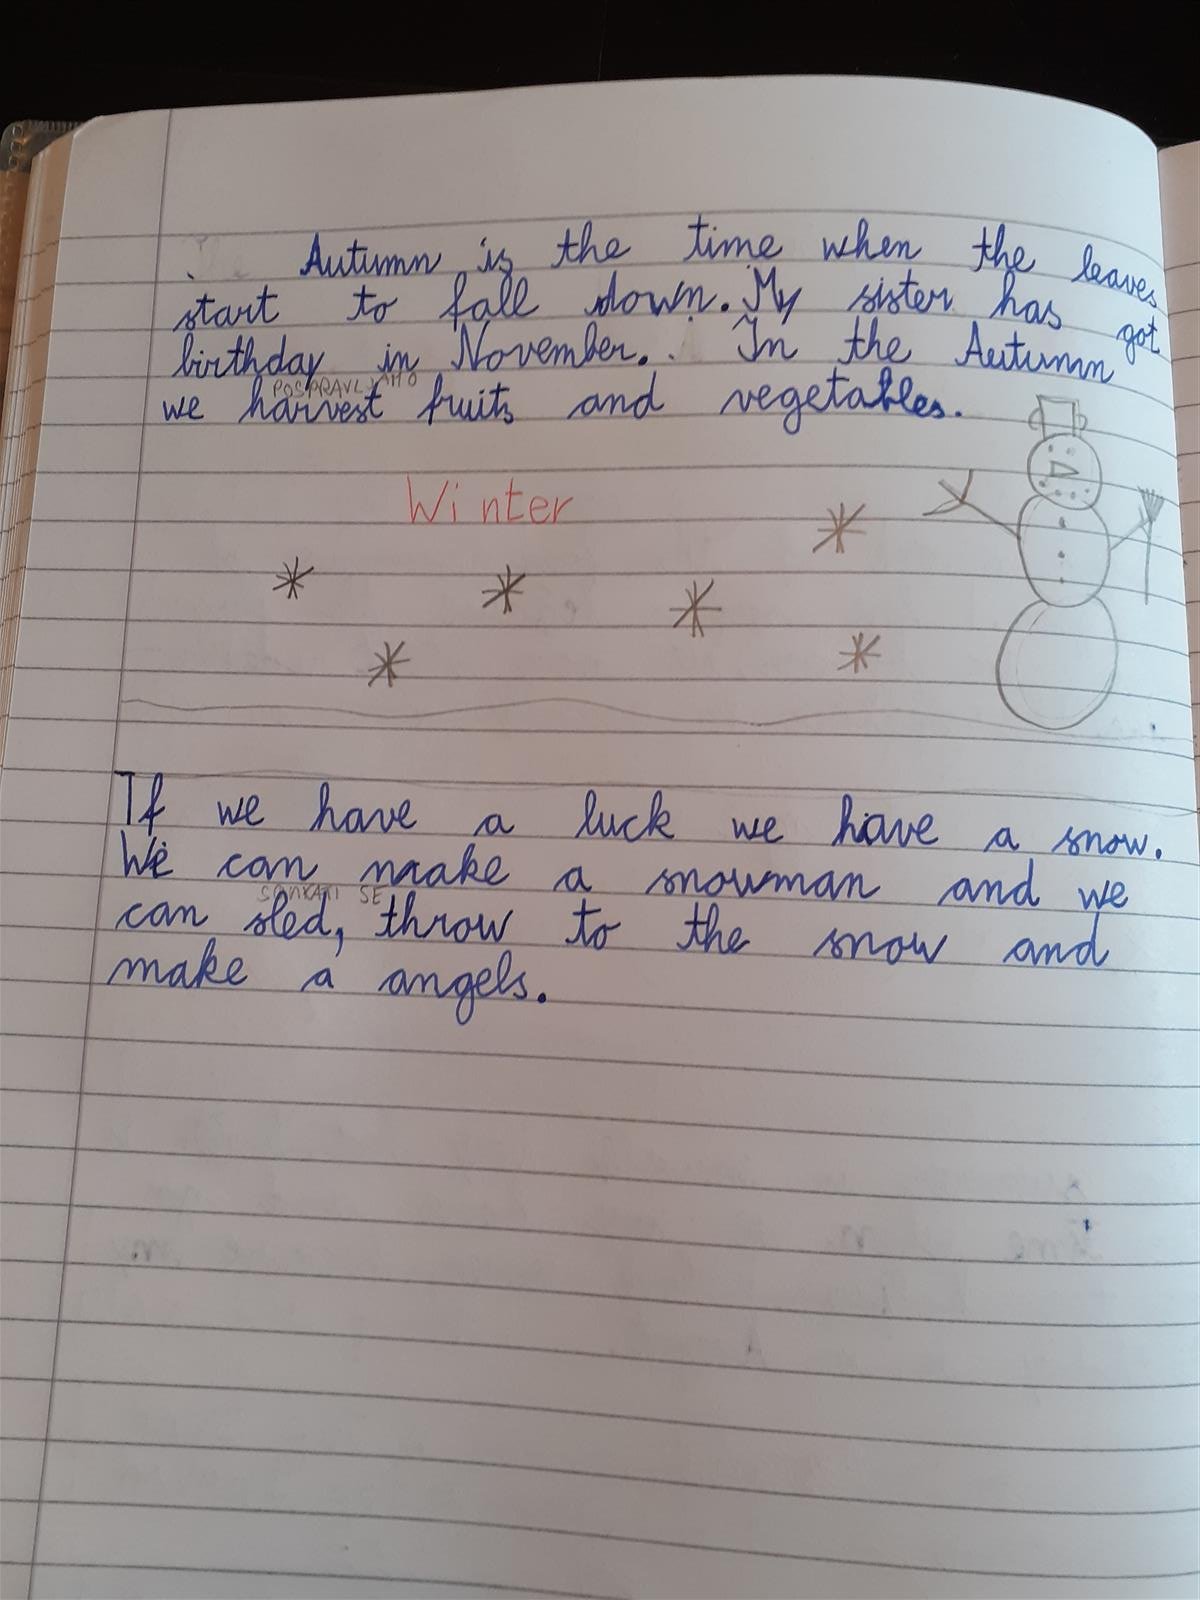 Autumn is the time when the leaves
start to fall down. My sister has got
birthday in November. In the Autumn
POSPRAVLJAMO
we harvest fruits and vegetables.
Winter
If we have a luck we have a snow.
We can make a snowman and we
SANKATI SE
can sled, throw to the snow and
make a angels.